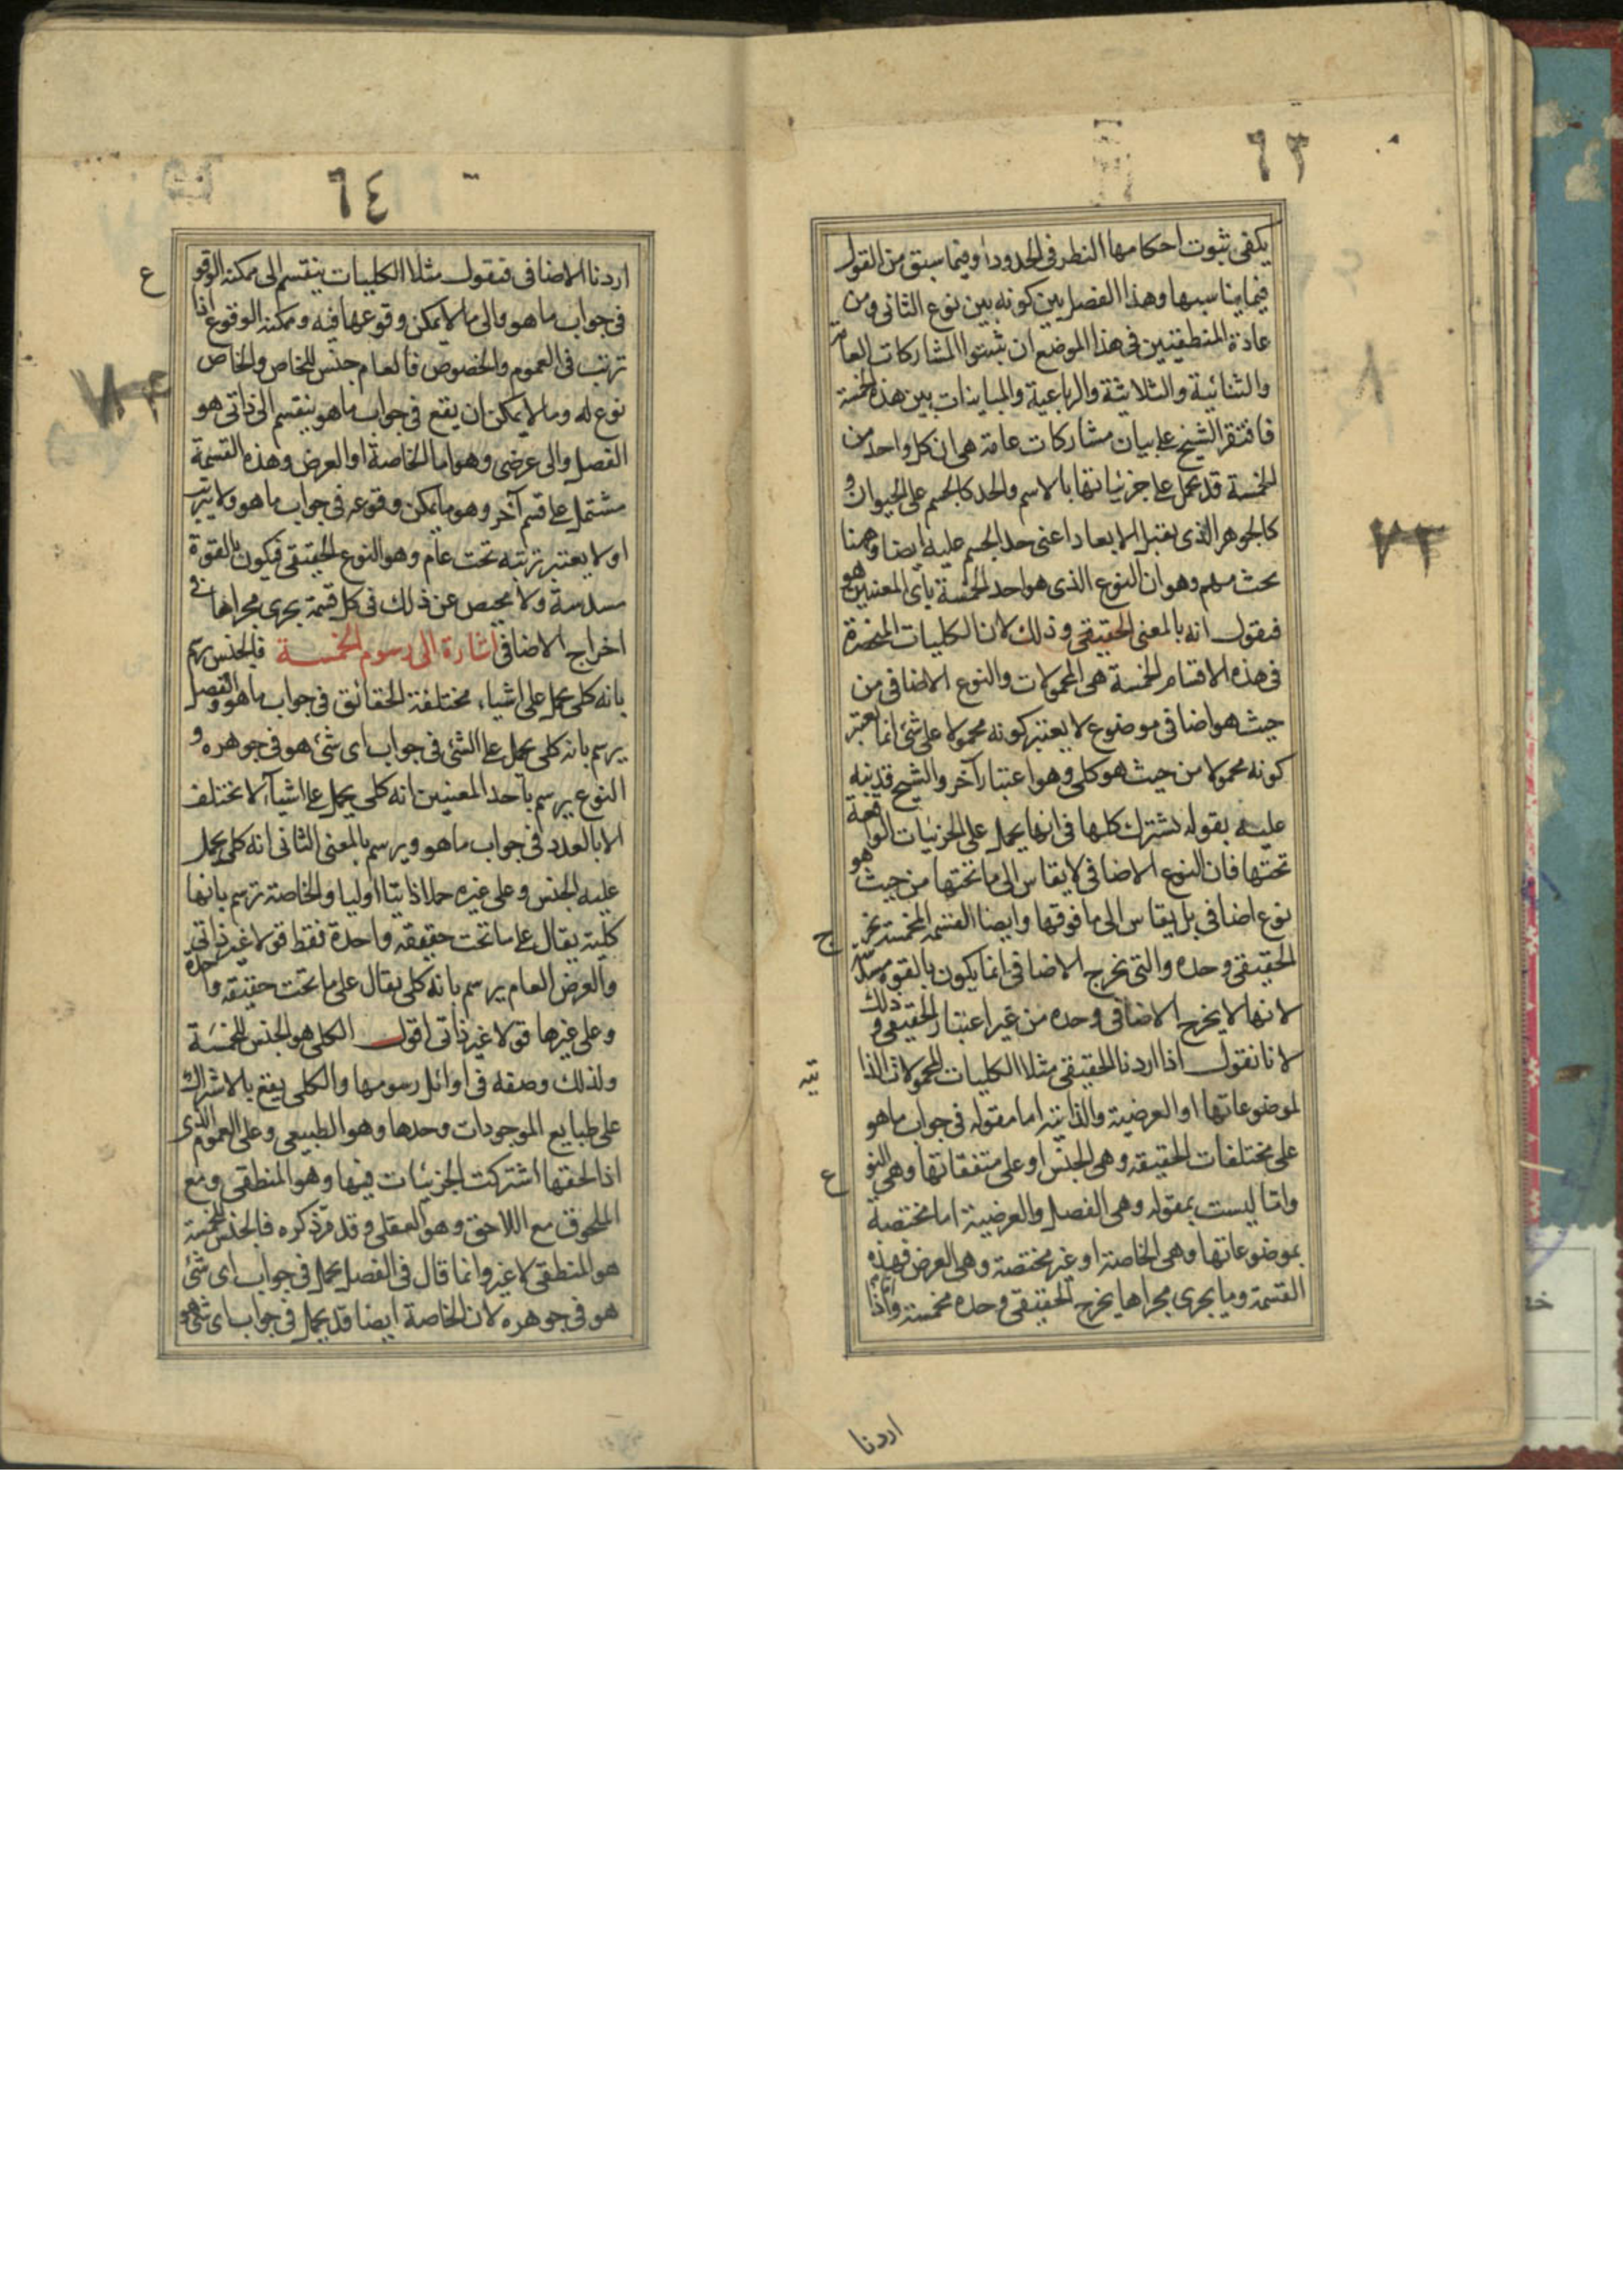 ٦٣
يكفى ثبوت احكامها النظر فى الحدود او فيما سبق من القول
فيما يناسبها وهذا الفصل بين كونه بين نوع الثانى ومن
عادة المنطقيين فى هذا الموضع ان يثبتوا المشاركات العامة
والثنائية والثلاثية والرباعية والمباينات بين هذه الخمسة
فاقتصر الشيخ على بيان مشاركات عامة هى ان كل واحد من
الخمسة قد يحمل على جزئياتها بالاسم والحد كالجسم على الحيوان و
كالجوهر الذى يقبل الابعاد اعنى حد الجسم عليه ايضا وههنا
بحث مهم وهو ان النوع الذى هو احد الخمسة باى المعنيين هو
فنقول انه بالمعنى الحقيقى وذلك لان الكليات المنحصرة
فى هذه الاقسام الخمسة هى المحمولات والنوع الاضافى من
حيث هو اضافى موضوع لا يعتبر كونه محمولا على شئ انما يعتبر
كونه محمولا من حيث هو كلى وهو اعتبار آخر والشيخ قد نبه
عليه بقوله تشترك كلها فى انها يحمل على الجزئيات الواقعة
تحتها فان النوع الاضافى لا يقاس الى ما تحتها من حيث هو
نوع اضافى بل يقاس الى ما فوقها وايضا القسمة المخمسة تخر
ج
الحقيقى وحده والتى يخرج الاضافى انما يكون بالقوة مسدسة
لانها لا يخرج الاضافى وحده من غير اعتبار الحقيقى و ذلك
لانا نقول اذا اردنا الحقيقى مثلا الكليات المحمولات الذا
تية
لموضوعاتها او العرضية والذاتية اما مقولة فى جواب ما هو
على مختلفات الحقيقة وهى الجنس او على متفقاتها وهى النو
ع
واما ليست بمقولة وهى الفصل والعرضية اما مختصة
بموضوعاتها وهى الخاصة او غير مختصة وهى العرض فهذه
القسمة وما يجرى مجراها يخرج الحقيقى وحده مخمسة واذا
اردنا
٧٣
٦٤
اردنا الاضافى فنقول مثلا الكليات ينقسم الى ممكنة الوقو
ع
فى جواب ما هو والى ما لا يمكن وقوعها فيه وممكنة الوقوع اذا
ترتب فى العموم والخصوص فالعام جنس للخاص والخاص
نوع له وما لا يمكن ان يقع فى جواب ما هو ينقسم الى ذاتى هو
الفصل والى عرضى وهو اما الخاصة او العرض وهذه القسمة
مشتمل على قسم آخر وهو ما يمكن وقوعه فى جواب ما هو ولا يترتب
او لا يعتبر ترتبه تحت عام وهو النوع الحقيقى فيكون بالقوة
مسدسة ولا محيص عن ذلك فى كل قسمة يجرى مجراها فى
اخراج الاضافى اشارة الى رسوم الخمسة فالجنس يرسم
بانه كلى يحمل على اشياء مختلفة الحقائق فى جواب ما هو والفصل
يرسم بانه كلى يحمل على الشئ فى جواب اى شئ هو فى جوهره و
النوع يرسم باحد المعنيين انه كلى يحمل على اشيآء لا تختلف
الا بالعدد فى جواب ما هو ويرسم بالمعنى الثانى انه كلى يحمل
عليه الجنس وعلى غيره حملا ذاتيا اوليا والخاصة ترسم بانها
كلية يقال على ما تحت حقيقة واحدة فقط قولا غير ذاتى
والعرض العام يرسم بانه كلى يقال على ما تحت حقيقة واحدة
وعلى غيرها قولا غير ذاتى اقول الكلى هو الجنس للخمسة
ولذلك وضعه فى اوائل رسومها والكلى يقع بالاشتراك
على طبايع الموجودات وحدها وهو الطبيعى وعلى العموم الذى
اذا لحقها اشتركت الجزئيات فيها وهو المنطقى ومع
الملحوق مع اللاحق وهو العقلى وقد مر ذكره فالجنس للخمسة
هو المنطقى لا غير وانما قال فى الفصل يحمل فى جواب اى شئ
هو فى جوهره لان الخاصة ايضا قد يحمل فى جواب اى شئ هو